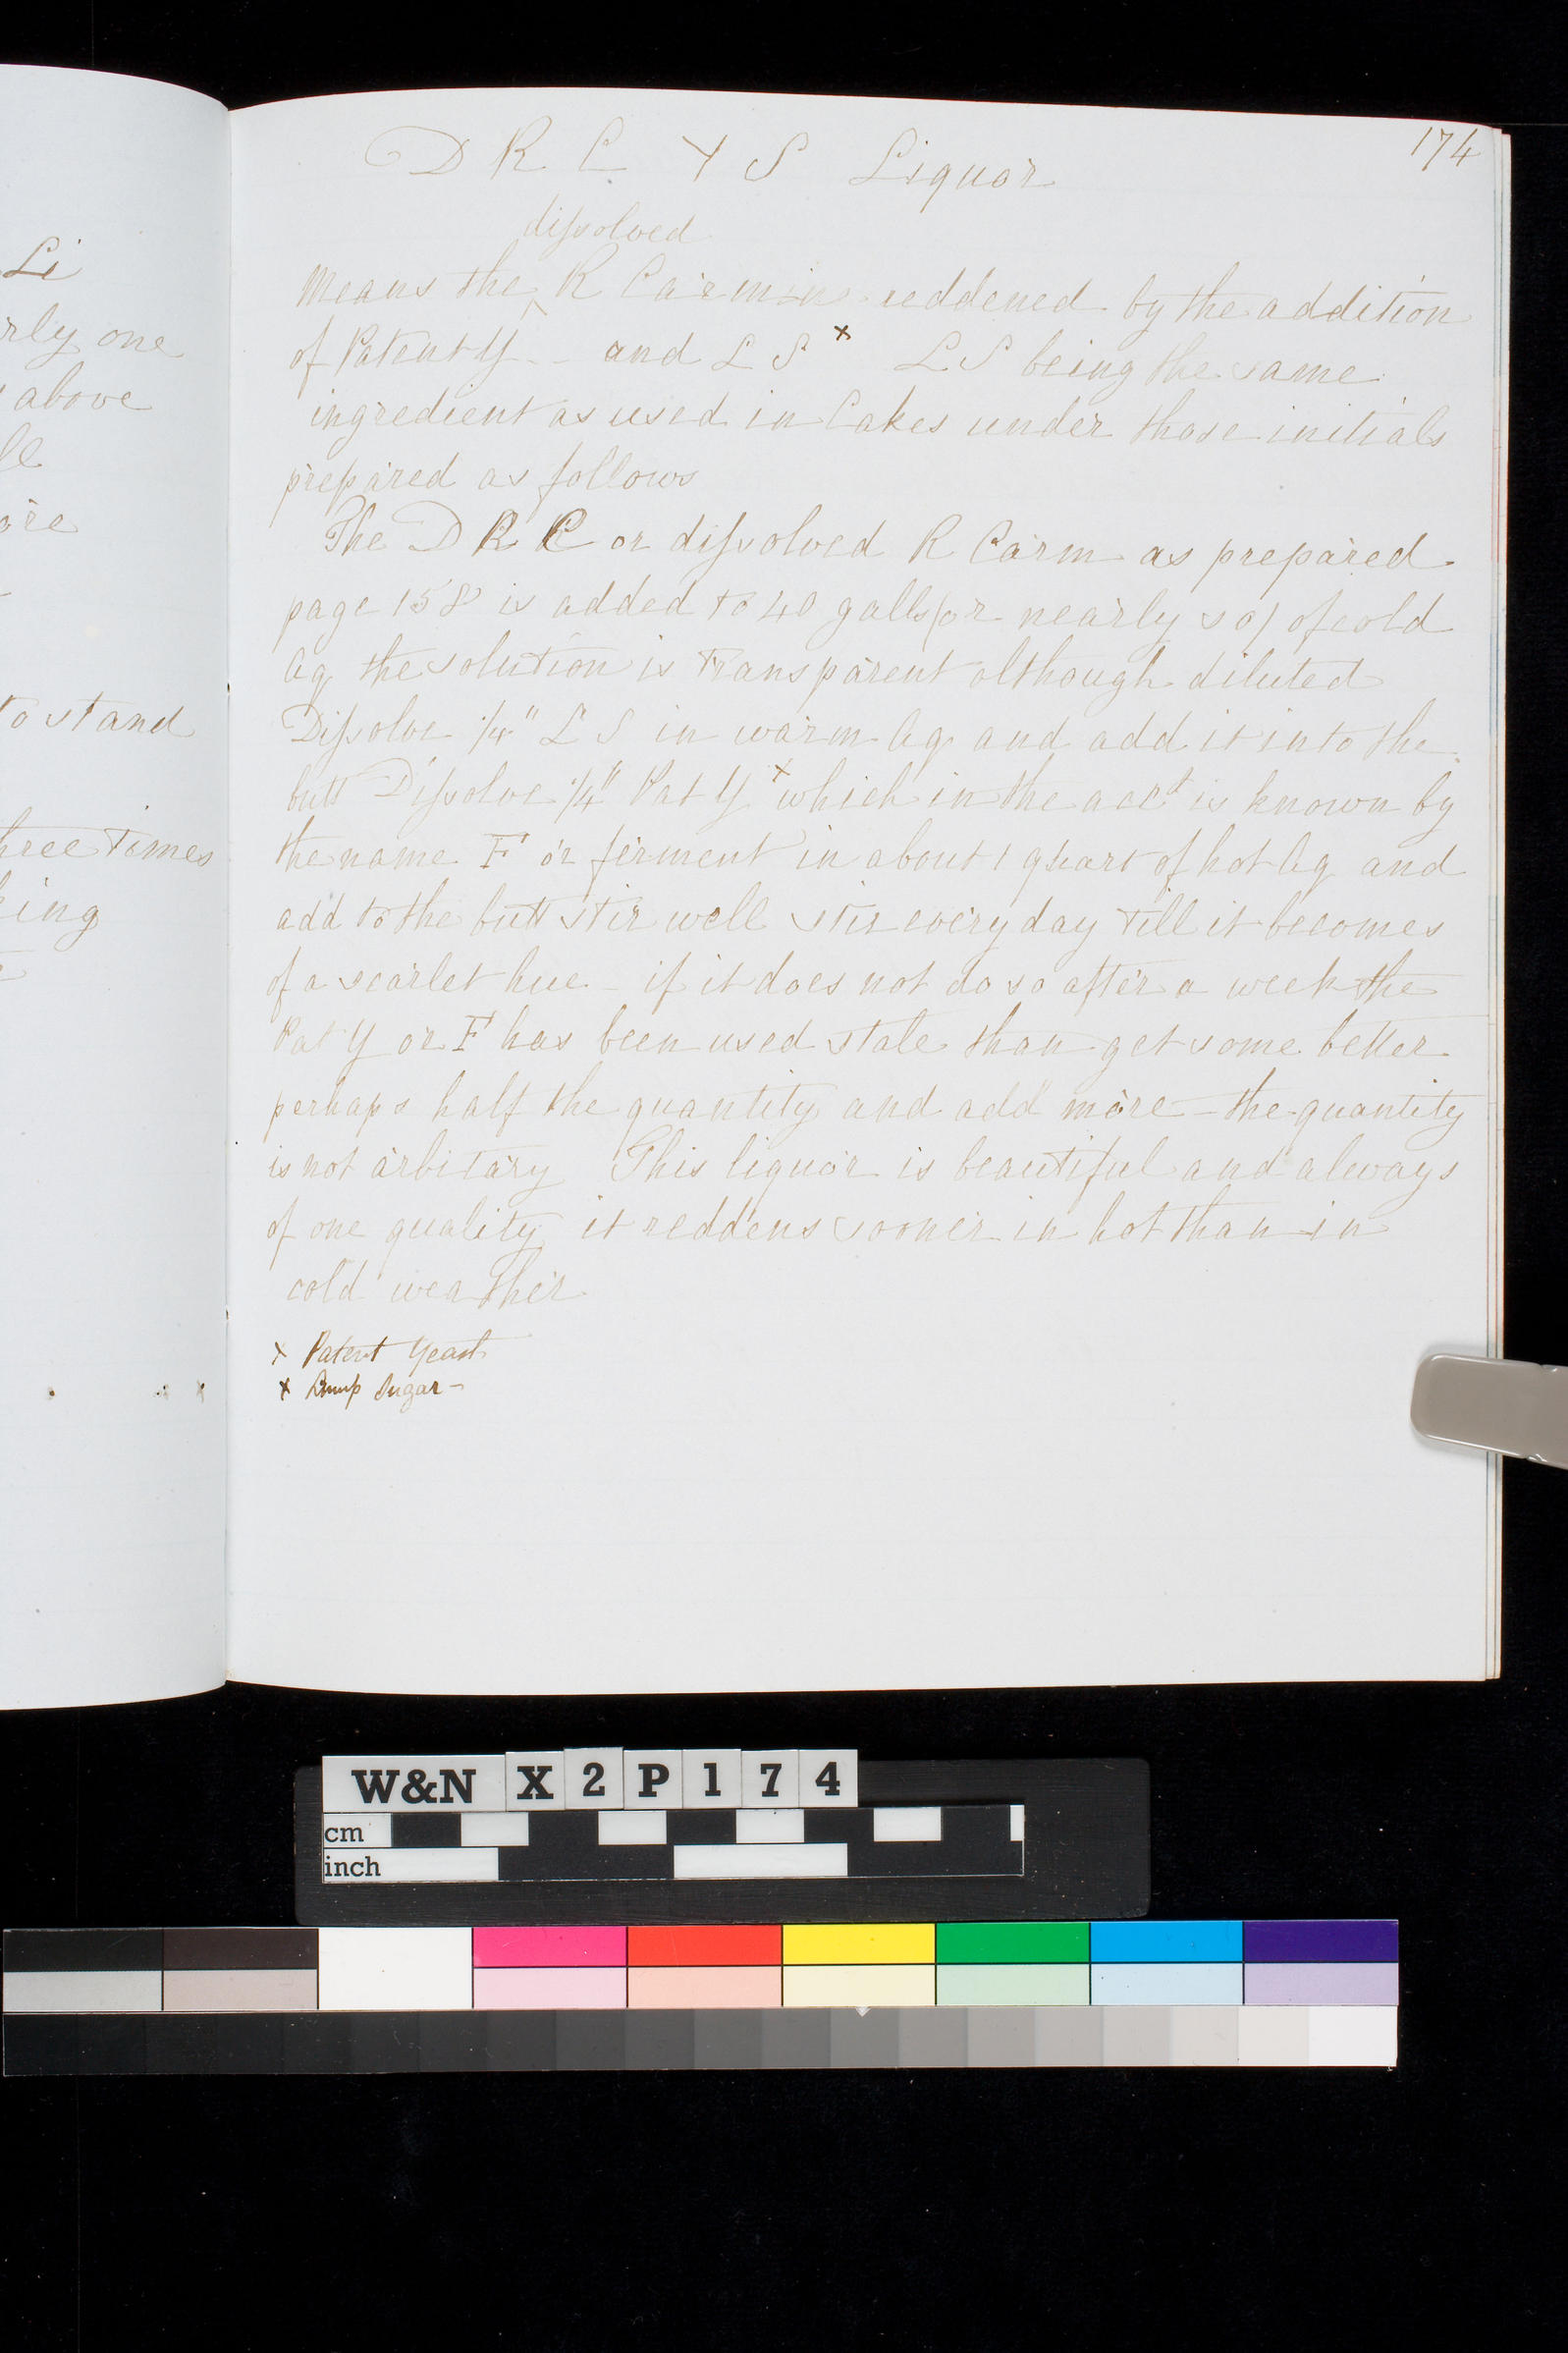 174
D R C Y S Liquor
dissolved
Means the R Carmine reddened by the addition
of Patent Y - and L S x L S being the same
ingredient as used in Cakes under those initials
prepared as follows
The D R C or dissolved R Carm as prepared
page 158 is added to 40 galls (or nearly so) of cold
Aq the solution is transparent although diluted
Dissolve 1/4" L S in warm Aq and add it into the
butt Dissolve 1/4" Pat Y x which in the acct is known by
the name F or ferment in about 1 quart of hot Aq and
add to the butt stir well stir every day till it becomes
of a scarlet hue - if it does not do so after a week the
Pat Y or F has been used stale than get some better
perhaps half the quantity and add more - the quantity
is not arbitary This liquor is beautiful and always
of one quality it reddens sooner in hot than in
cold weather
x Patent Yeast
x Lump Sugar -
Li
rly one
above
re
to stand
hree times
king
W&N X 2 P 1 7 4
cm
inch